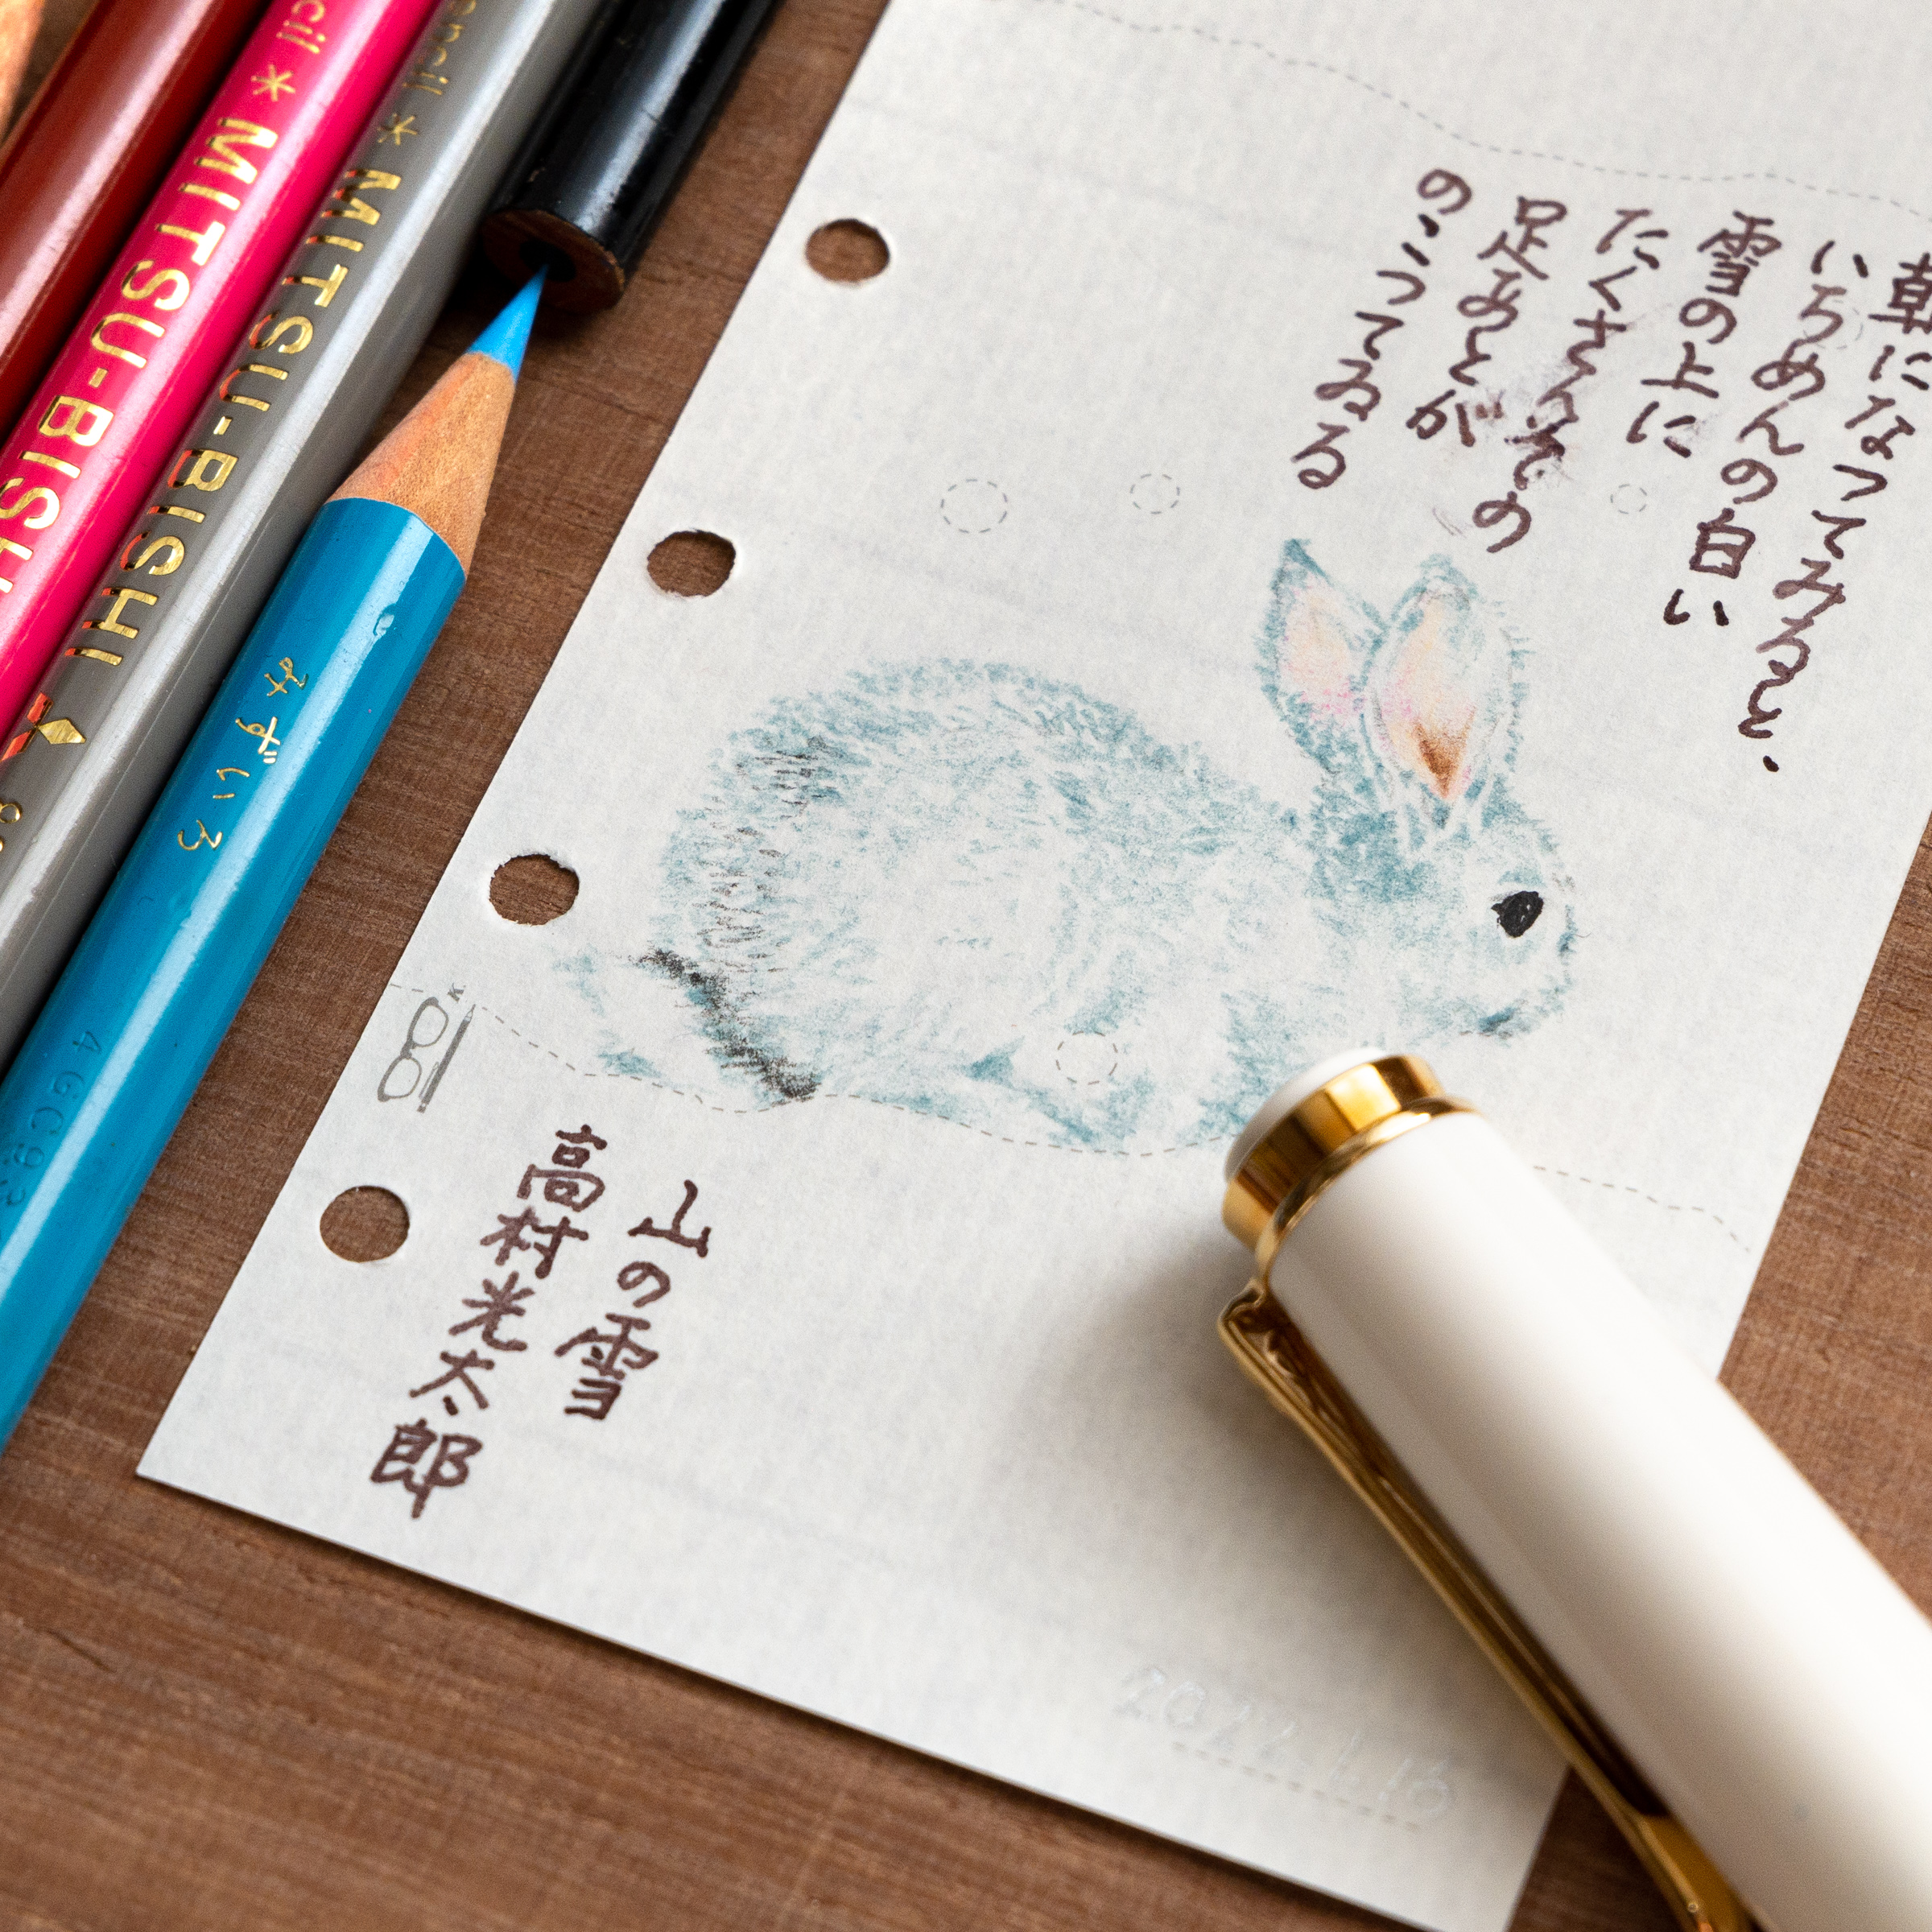 朝になつてみると、
いちめんの白い
雪の上に
たくさんその
足あとが
のこつてゐる
山の雪
高村光太郎
cil * MITSU-BISHI
MITSU-BISHI
みずいろ
2022.1.13